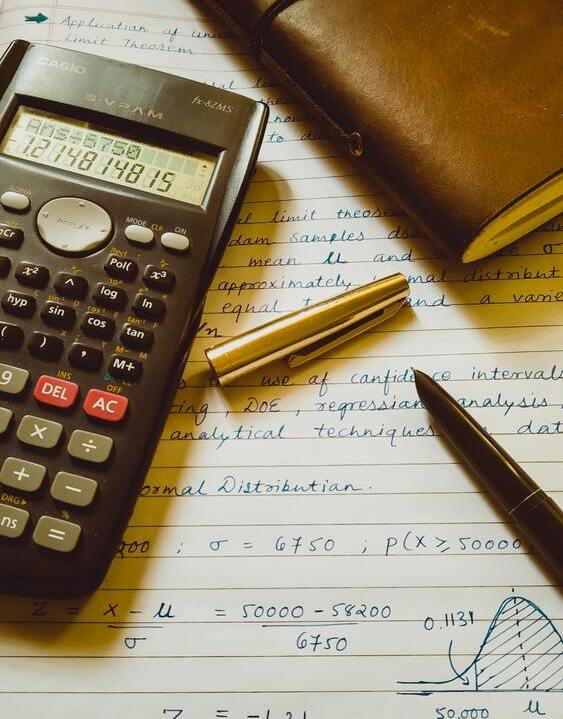 Application of
Limit Theorem
CASIO
S-V.P.A.M.
fx-82MS
Ans÷6750
-1.214814815
REPLAY
MODE CLR ON
nCr Rec( Pol( x³
x² ^ log ln
hyp sin cos tan
( ) , M+
9 DEL AC
INS OFF
× ÷
+ −
DRG▸ %
ns =
limit theore
dom samples
mean μ and σ
approximately distribut
equal and a varia
/n
use of confidence intervals
ting, DOE, regression analysis
analytical techniques dat
ormal Distribution.
; σ = 6750 ; P(X ≥ 50000
Z = x − μ = 50000 − 58200
σ 6750
0.1131
50,000 μ
Z = −1.21